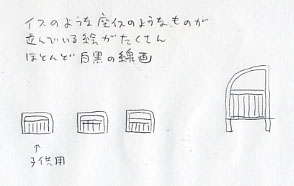 イスのような座イスのようなものが
並んでいる絵がたくさん
ほとんど白黒の線画
↑
子供用